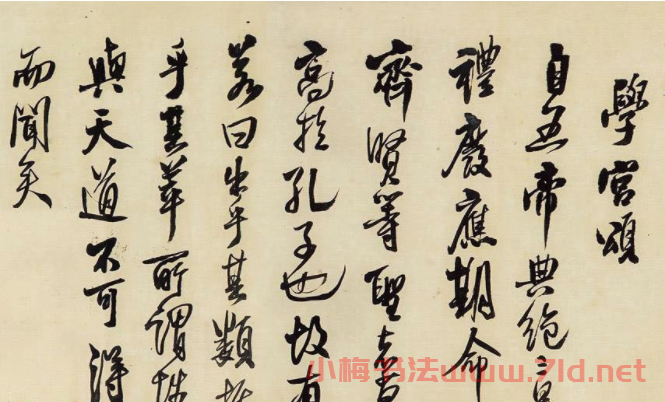 學宮頌
自五帝典絕三
禮廢應期命
齊賢等聖者
高於孔子也故有
若曰出乎其類拔
乎其萃所謂性
與天道不可得
而聞矣
小梅书法www.7ld.net